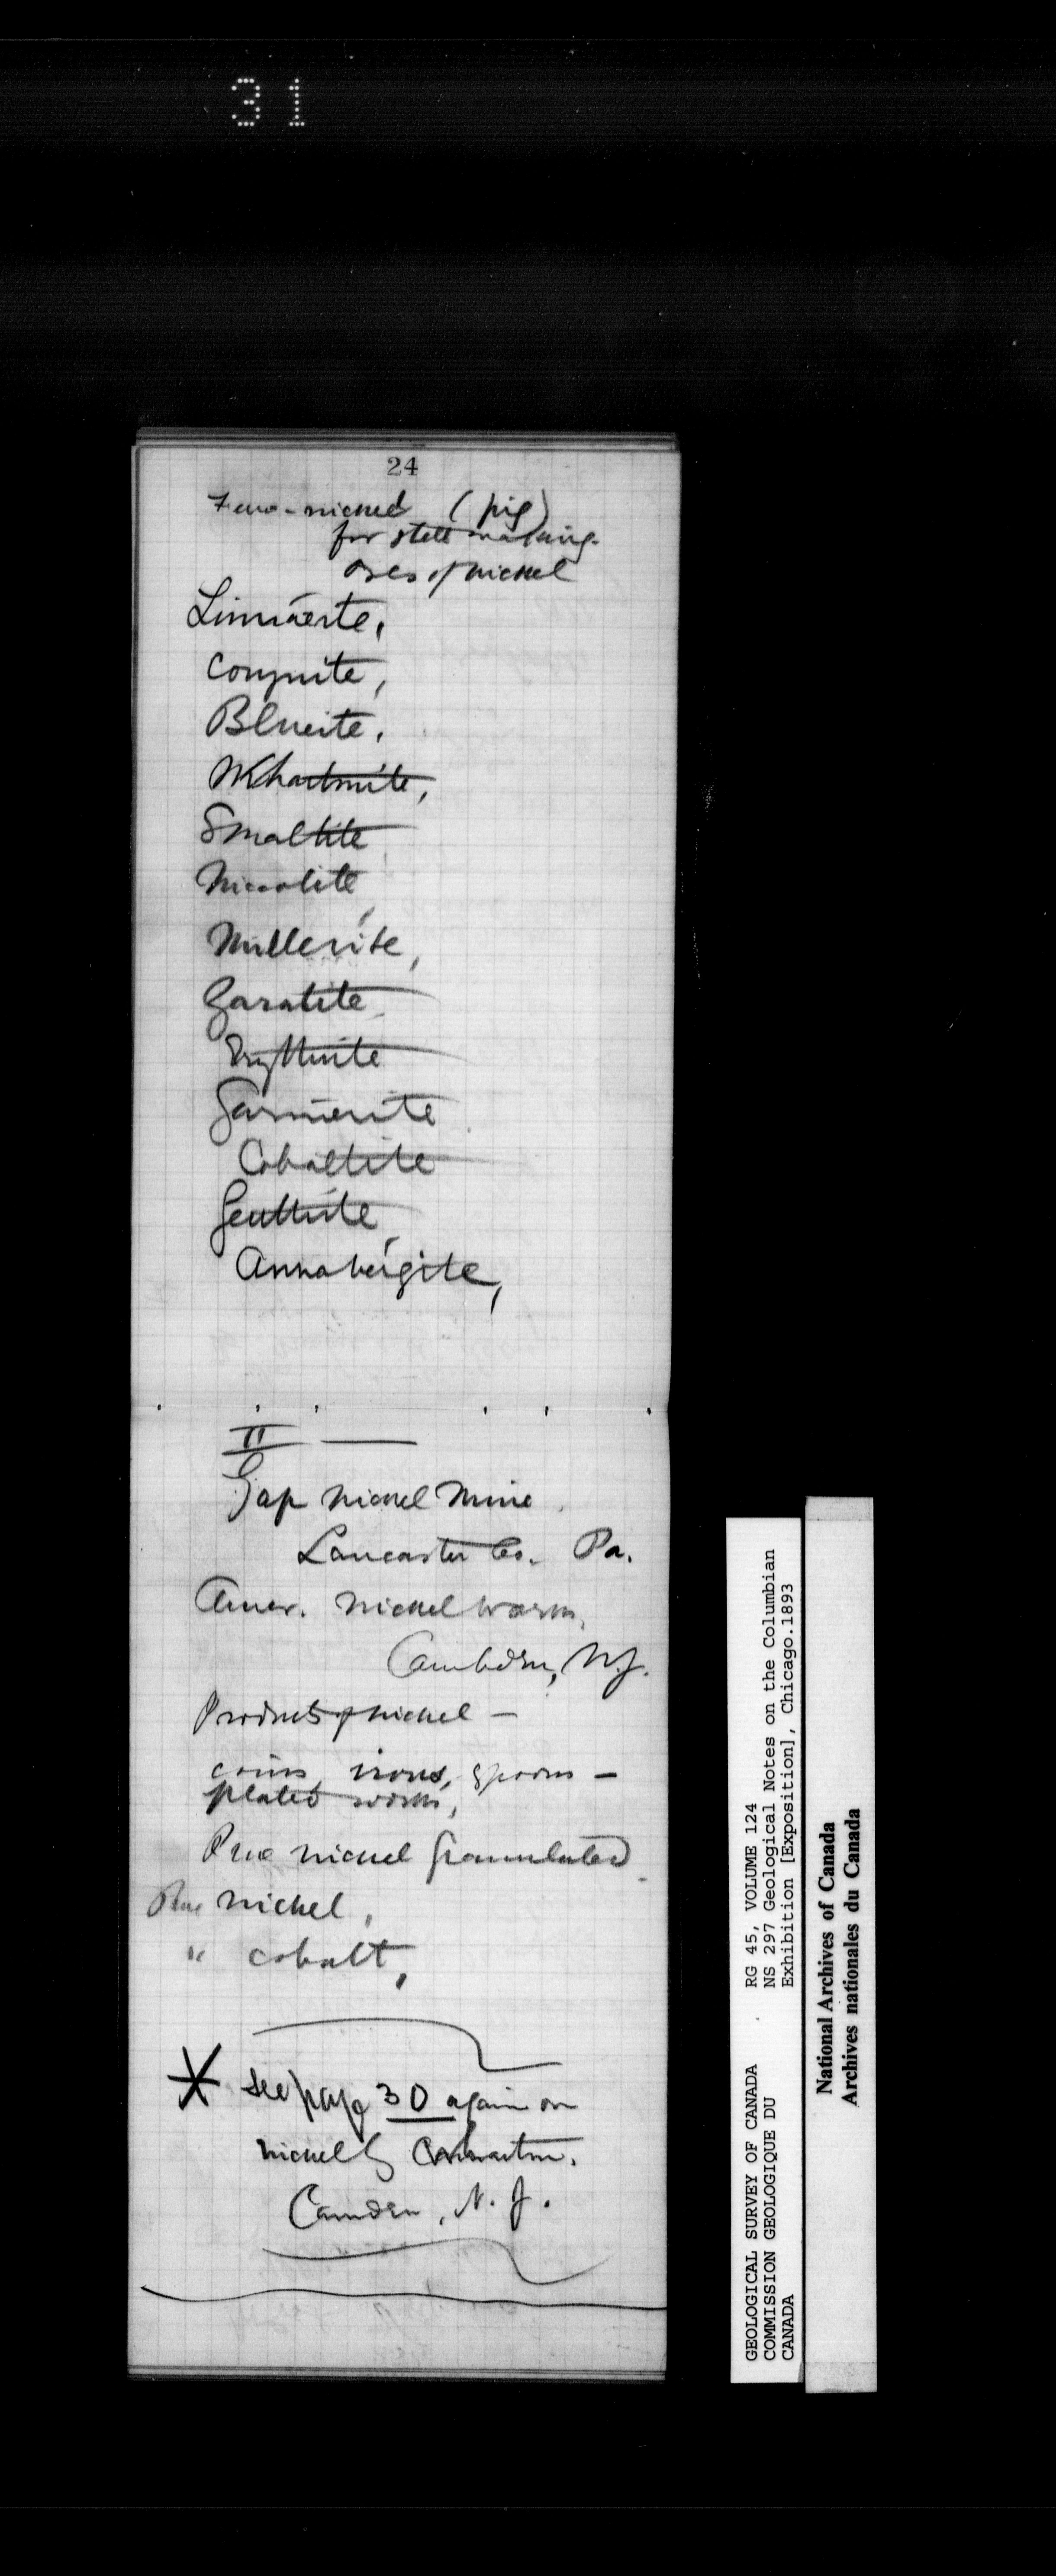 31
24
Ferro-nickel (pig)
for steel making.
ores of nickel
Linnaeite,
Corynite,
Blueite,
Whartonite,
Smaltite
Niccolite,
Millerite,
Zaratite
Erythrite
Garnierite
Cobaltite
Genthite,
Annabergite,
II —
Gap Nickel Mine
Lancaster Co. Pa.
Amer. Nickel Works,
Camden, N.J.
Products of nickel —
coins, spoons —
plated works,
Pure nickel granulated
Pure nickel,
" cobalt,
* see page 30 again on
nickel by
Camden, N.J.
GEOLOGICAL SURVEY OF CANADA RG 45, VOLUME 124
COMMISSION GEOLOGIQUE DU NS 297 Geological Notes on the Columbian
CANADA Exhibition [Exposition], Chicago.1893
National Archives of Canada
Archives nationales du Canada